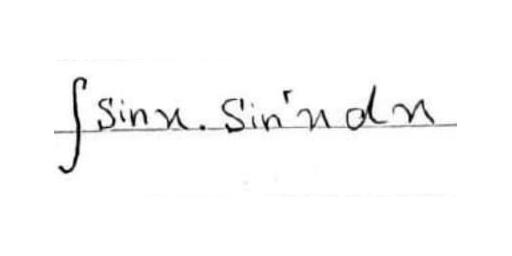 ∫ sinx. sin'x dx